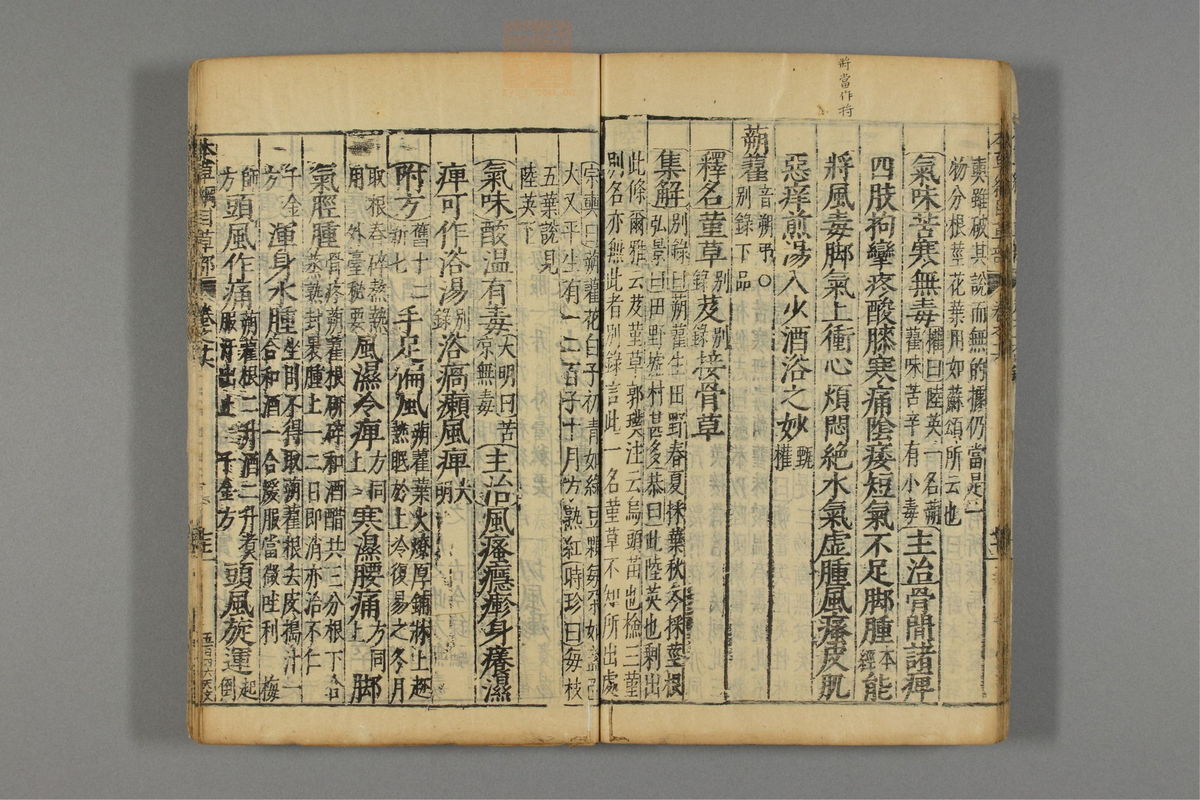 將當作捋
奭雖破其說而無的據仍當是一
物分根莖花葉用如蘇頌所云也
氣味苦寒無毒權曰陸英一名蒴藋味苦辛有小毒主治骨間諸痺
四肢拘攣疼酸膝寒痛陰痿短氣不足脚腫本經能
將風毒脚氣上衝心煩悶絶水氣虛腫風瘙皮肌
惡痒煎湯入少酒浴之妙甄權
蒴藋音朔弔○别錄下品
釋名菫草别錄芨别錄接骨草
集解别錄曰蒴藋生田野春夏採葉秋冬採莖根
弘景曰田野墟村甚多恭曰此陸英也剩出
此條爾雅云芨菫草郭璞注云烏頭苗也檢三菫
别名亦無此者别錄言此一名菫草不知所出處
宗奭曰蒴藋花白子初青如綠豆顆每朶如盞面
大又平生有一二百子十月方熟紅時珍曰每枝
五葉說見
陸英下
氣味酸温有毒大明曰苦凉無毒主治風瘙癮𤺋身癢濕
痺可作浴湯别錄浴瘑癩風痺大明
附方舊十二新七手足偏風蒴藋葉火燎厚鋪牀上趂熱眠於上冷復易之冬月
取根舂碎熬熱用外臺秘要風濕冷痺方同上寒濕腰痛方同上脚
氣脛腫骨疼蒴藋根研碎和酒醋共三分根下合
蒸熟封裹腫上一二日即消亦治不仁
千金方渾身水腫坐卧不得取蒴藋根去皮搗汁一
合和酒一合煖服當微吐利梅
師方頭風作痛蒴藋根二升酒二升煑服汗出止千金方頭風旋運起倒
本草綱目草部 卷之十六